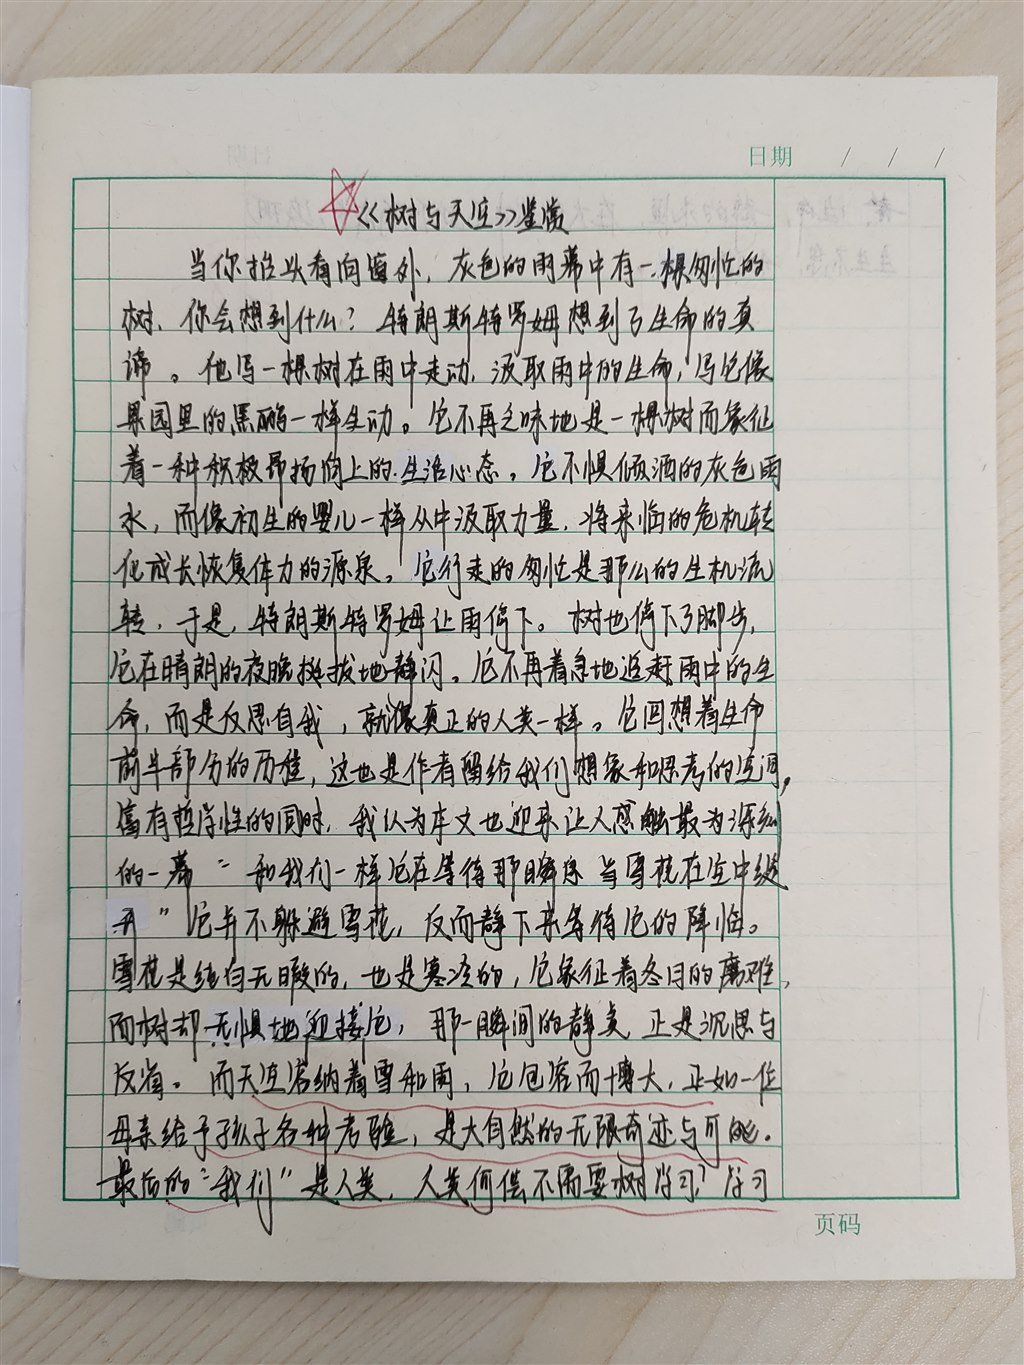 日期 / / /
《树与天空》鉴赏
当你抬头看向窗外，灰色的雨幕中有一棵匆忙的
树，你会想到什么？特朗斯特罗姆想到了生命的真
谛。他写一棵树在雨中走动，汲取雨中的生命，写它像
果园里的黑鹂一样生动。它不再乏味地是一棵树而象征
着一种积极昂扬向上的生活心态。它不惧倾洒的灰色雨
水，而像初生的婴儿一样从中汲取力量，将来临的危机转
化成长恢复体力的源泉。它行走的匆忙是那么的生机流
转，于是，特朗斯特罗姆让雨停下。树也停下了脚步，
它在晴朗的夜晚挺拔地静闪。它不再着急地追赶雨中的生
命，而是反思自我，就像真正的人类一样。它回想着生命
前半部分的历程，这也是作者留给我们想象和思考的空间，
富有哲学性的同时，我认为本文也迎来让人感触最为深刻
的一幕“和我们一样它在等待那瞬息 当雪花在空中绽
开”它并不躲避雪花，反而静下来等待它的降临。
雪花是纯白无暇的，也是寒冷的，它象征着冬日的磨难，
而树却无惧地迎接它，那一瞬间的静美正是沉思与
反省。而天空容纳着雪和雨，它包容而博大，正如一位
母亲给予孩子各种考验，是大自然的无限奇迹与可能。
最后的“我们”是人类，人类何偿不需要树学习？学习
页码